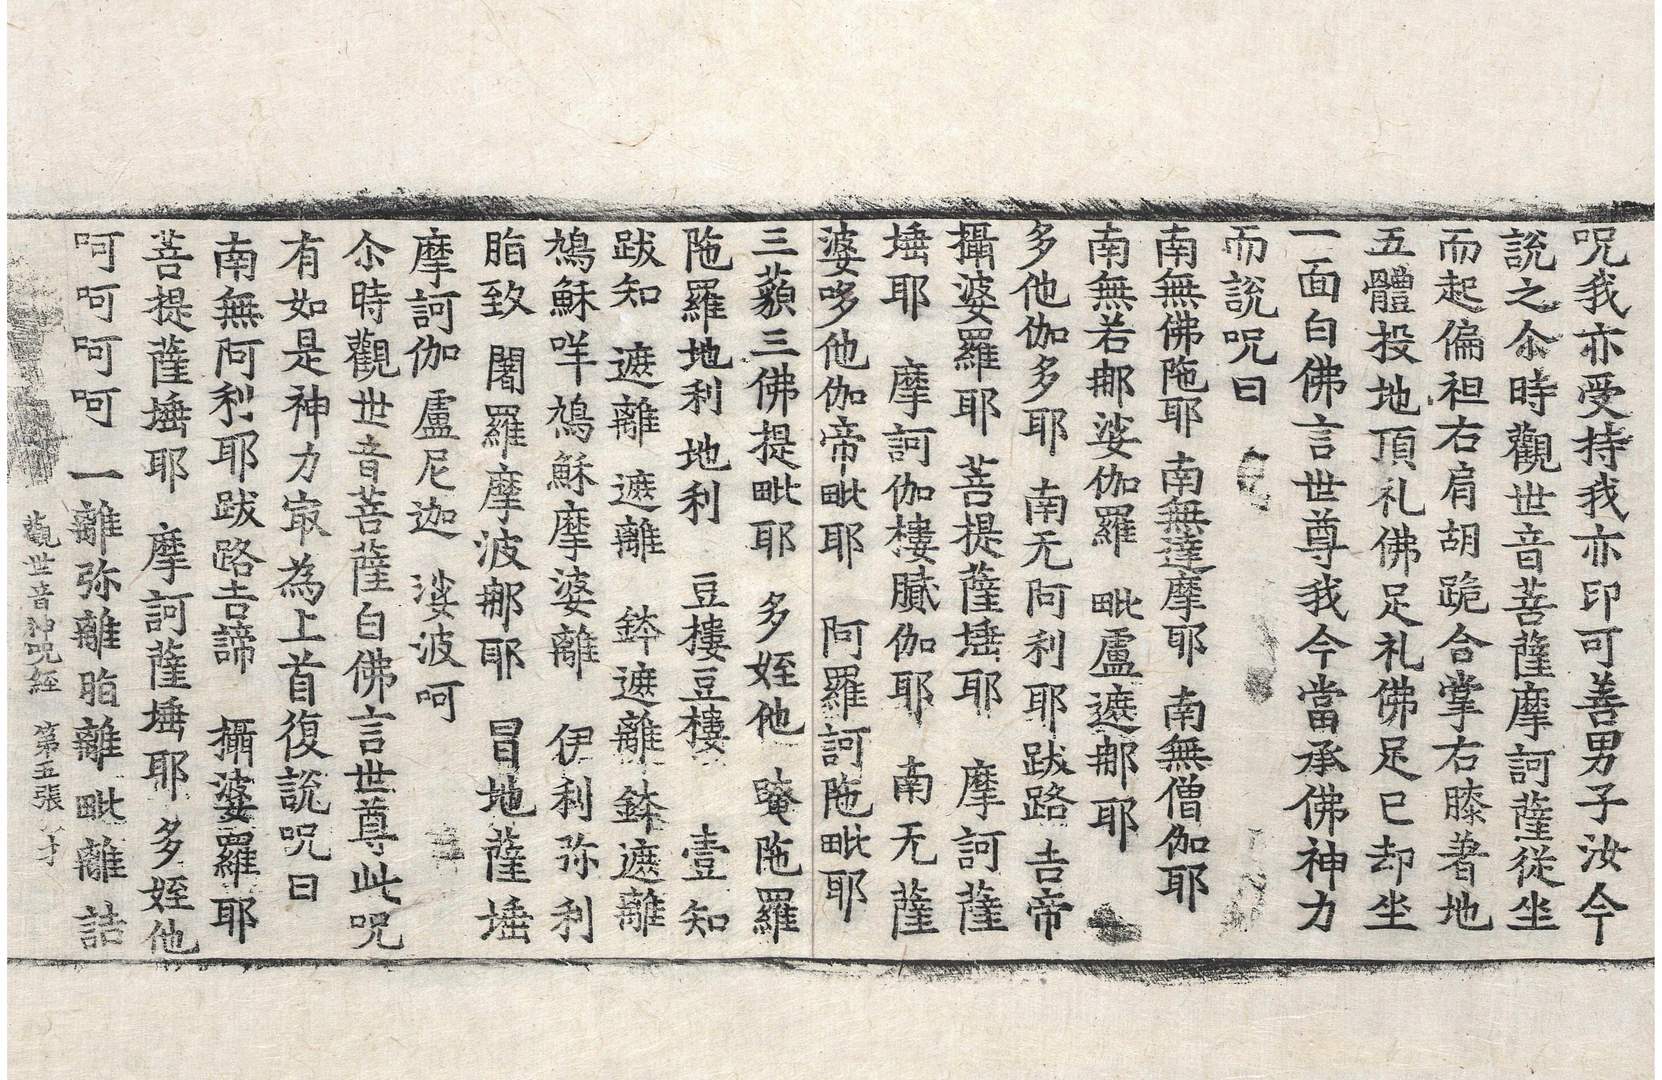 呪我亦受持我亦印可善男子汝今
說之尒時觀世音菩薩摩訶薩從坐
而起偏袒右肩胡跪合掌右膝著地
五體投地頂礼佛足礼佛足已却坐
一面白佛言世尊我今當承佛神力
而說呪曰
南無佛陁耶 南無達摩耶 南無僧伽耶
南無若那娑伽羅 毗盧遮那耶
多他伽多耶 南无阿利耶跋路吉帝
攝婆羅耶 菩提薩埵耶 摩訶薩
埵耶 摩訶伽樓膩伽耶 南无薩
婆哆他伽帝毗耶 阿羅訶陁毗耶
三藐三佛提毗耶 多姪他 䤶陁羅
陁羅地利 地利 豆樓豆樓 壹知
跋知 遮離 遮離 鉢遮離 鉢遮離
鳩蘇咩鳩蘇摩婆離 伊利弥利
脂致 闍羅摩波那耶 冒地薩埵
摩訶伽 盧尼迦 娑波呵
尒時觀世音菩薩白佛言世尊此呪
有如是神力㝡為上首復說呪曰
南無阿利耶跋路吉諦 攝婆羅耶
菩提薩埵耶 摩訶薩埵耶 多姪他
呵呵呵呵 一離弥離脂離毗離 詰
觀世音神呪經 第五張 才